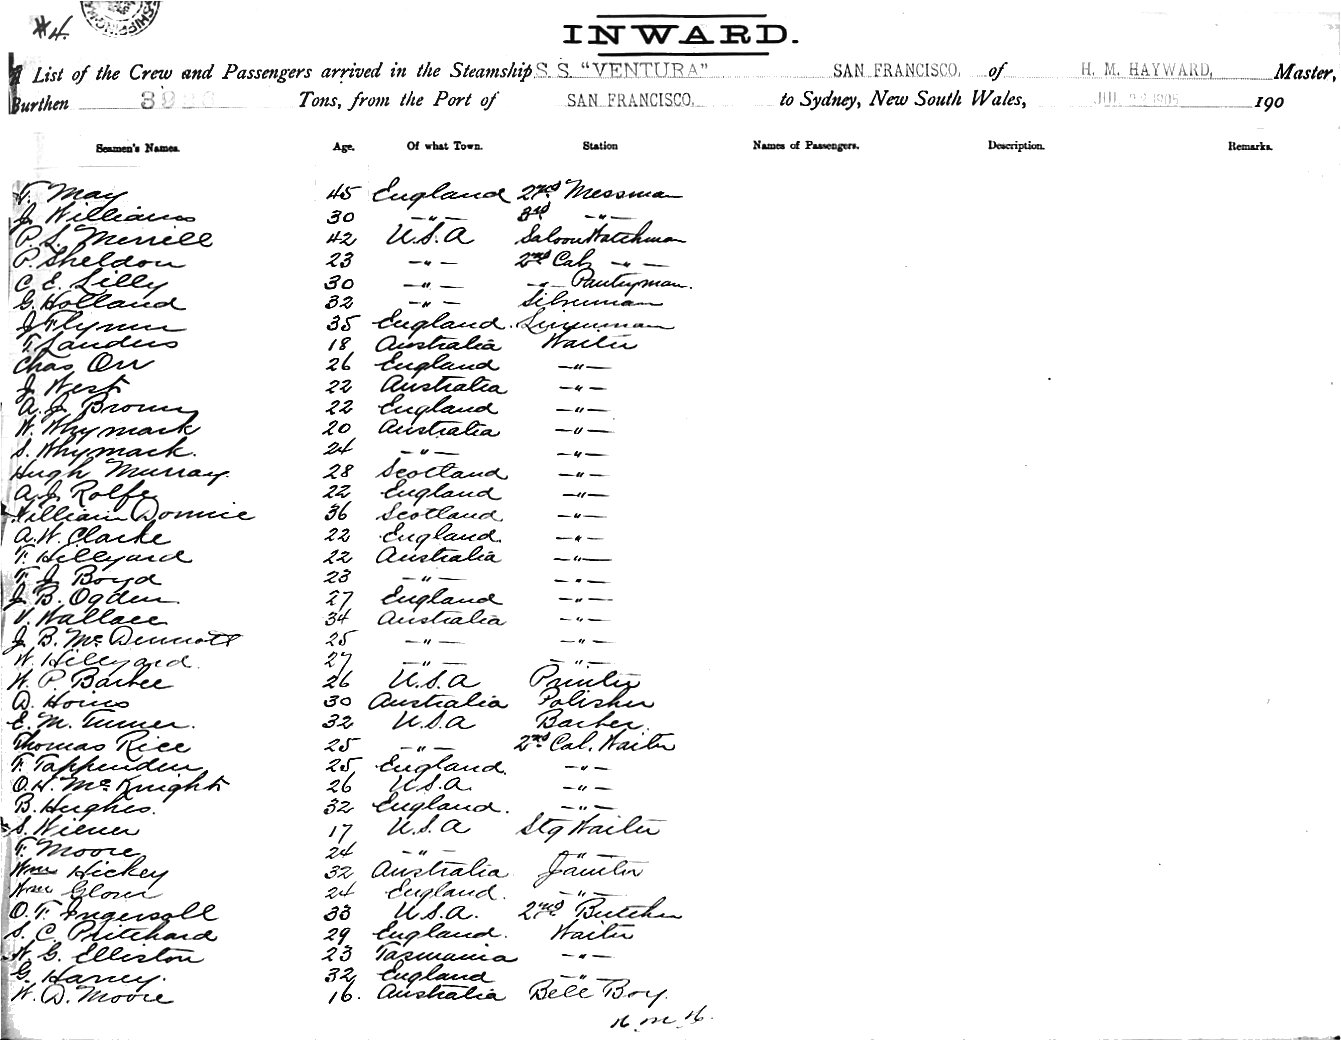 #4.
INWARD.
List of the Crew and Passengers arrived in the Steamship S. S. "VENTURA" SAN FRANCISCO, of H. M. HAYWARD, Master,
Burthen Tons, from the Port of SAN FRANCISCO, to Sydney, New South Wales, 190
Seamen's Names. Age. Of what Town. Station Names of Passengers. Description. Remarks.
F. May 45 England 2nd Messman
J. Williams 30 —"— 3rd —"—
P. S. Merrill 42 U.S.A Saloon Watchman
P. Sheldon 23 —"— 2nd Cab —"—
C. E. Lilly 30 —"— —"— Pantryman.
G. Holland 32 —"— Silverman
J. Flynn 35 England. Linenman
T. Landers 18 Australia Waiter
Chas. Orr 26 England —"—
J. West 22 Australia —"—
A. J. Brown 22 England —"—
W. Whymark 20 Australia —"—
S. Whymark. 24 —"— —"—
Hugh Murray. 28 Scotland —"—
A. J. Rolfe 22 England —"—
William Downie 36 Scotland —"—
A. W. Clarke 22 England. —"—
F. Hillyard 22 Australia —"—
F. J. Boyd 23 —"— —"—
J. B. Ogden. 27 England —"—
V. Wallace 34 Australia —"—
J. B. McDermott 25 —"— —"—
W. Hillyard. 27 —"— —"—
W. P. Barbee 26 U.S.A Printer
D. 30 Australia Polisher
E. M. Turner. 32 U.S.A Barber.
Thomas Rice 25 —"— 2nd Cab. Waiter
F. Tappenden 25 England. —"—
O. H. McKnight 26 U.S.A. —"—
B. Hughes. 32 England. —"—
S. Wiener 17 U.S.A Stg Waiter
F. Moore 24 —"— —"—
Wm Hickey 32 Australia Janitor
Wm Glover 24 England. —"—
O. F. Ingersoll 33 U.S.A. 2nd Butcher
S. C. Pritchard 29 England. Waiter
W. G. Elliston 23 Tasmania —"—
G. Harvey. 32 England —"—
W. D. Moore 16. Australia Bell Boy.